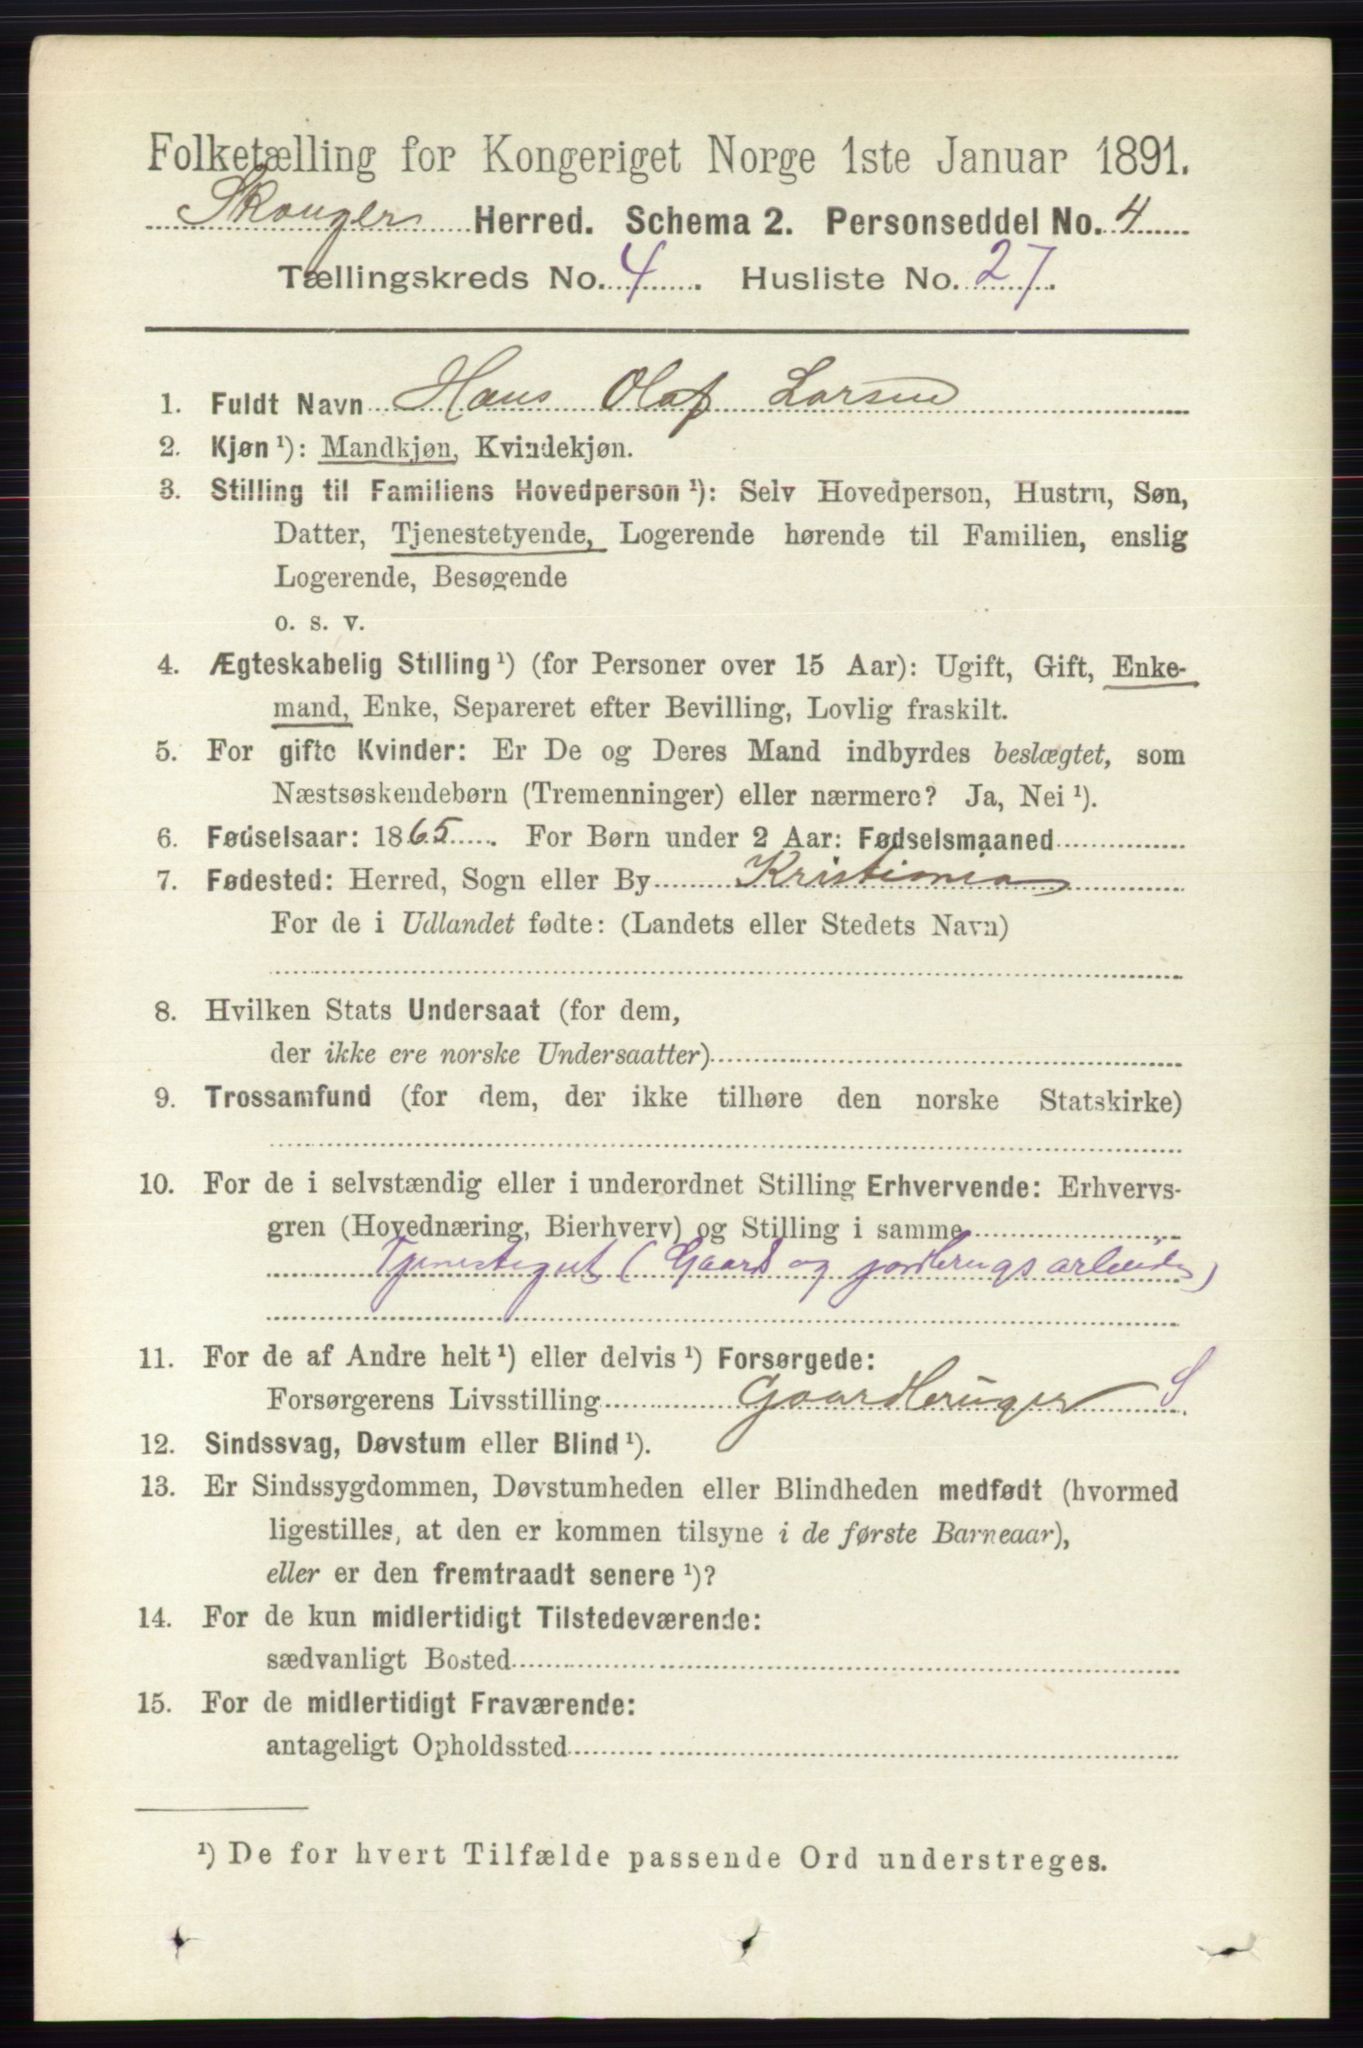 Folketælling for Kongeriget Norge 1ste Januar 1891.
Skouger Herred. Schema 2. Personseddel No. 4
Tællingskreds No. 4. Husliste No. 27.
1. Fuldt Navn Hans Olaf Larsen
2. Kjøn ¹): Mandkjøn, Kvindekjøn.
3. Stilling til Familiens Hovedperson ¹): Selv Hovedperson, Hustru, Søn,
Datter, Tjenestetyende, Logerende hørende til Familien, enslig
Logerende, Besøgende
o. s. v.
4. Ægteskabelig Stilling ¹) (for Personer over 15 Aar): Ugift, Gift, Enke-
mand, Enke, Separeret efter Bevilling, Lovlig fraskilt.
5. For gifte Kvinder: Er De og Deres Mand indbyrdes beslægtet, som
Næstsøskendebørn (Tremenninger) eller nærmere? Ja, Nei ¹).
6. Fødselsaar: 1865. For Børn under 2 Aar: Fødselsmaaned
7. Fødested: Herred, Sogn eller By Kristiania
For de i Udlandet fødte: (Landets eller Stedets Navn)
8. Hvilken Stats Undersaat (for dem,
der ikke ere norske Undersaatter)
9. Trossamfund (for dem, der ikke tilhøre den norske Statskirke)
10. For de i selvstændig eller i underordnet Stilling Erhvervende: Erhvervs-
gren (Hovednæring, Bierhverv) og Stilling i samme
Tjenestegut (Gaard og jordbrugsarbeide)
11. For de af Andre helt ¹) eller delvis ¹) Forsørgede:
Forsørgerens Livsstilling Gaardbruger S
12. Sindssvag, Døvstum eller Blind ¹).
13. Er Sindssygdommen, Døvstumheden eller Blindheden medfødt (hvormed
ligestilles, at den er kommen tilsyne i de første Barneaar),
eller er den fremtraadt senere ¹)?
14. For de kun midlertidigt Tilstedeværende:
sædvanligt Bosted
15. For de midlertidigt Fraværende:
antageligt Opholdssted
¹) De for hvert Tilfælde passende Ord understreges.